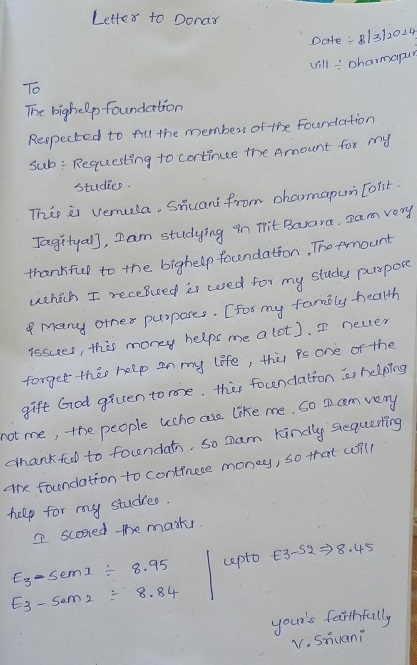 Letter to Donar
Date : 8/3/2024
Vill : Dharmapur
To
The bighelp foundation
Respected to All the members of the Foundation
Sub : Requesting to continue the Amount for my
studies.
This is vemula. Srivani from Dharmapuri [Dist.
Jagityal], Iam studying in IIIt Basara. Iam very
thankful to the bighelp foundation. The Amount
which I received is used for my study purpose
& Many other purposes. [For my family health
issues, this money helps me a lot]. I never
forget this help in my life, this is one of the
gift God given to me. this foundation is helping
not me, the people who are like me. So Iam very
thankful to foundatn. So Iam kindly requesting
the foundation to continue money, so that will
help for my studies.
I scored the marks.
E3 - Sem 1 : 8.95
E3 - Sem 2 : 8.84
upto E3-S2 ⇒ 8.45
your's faithfully
V. Srivani